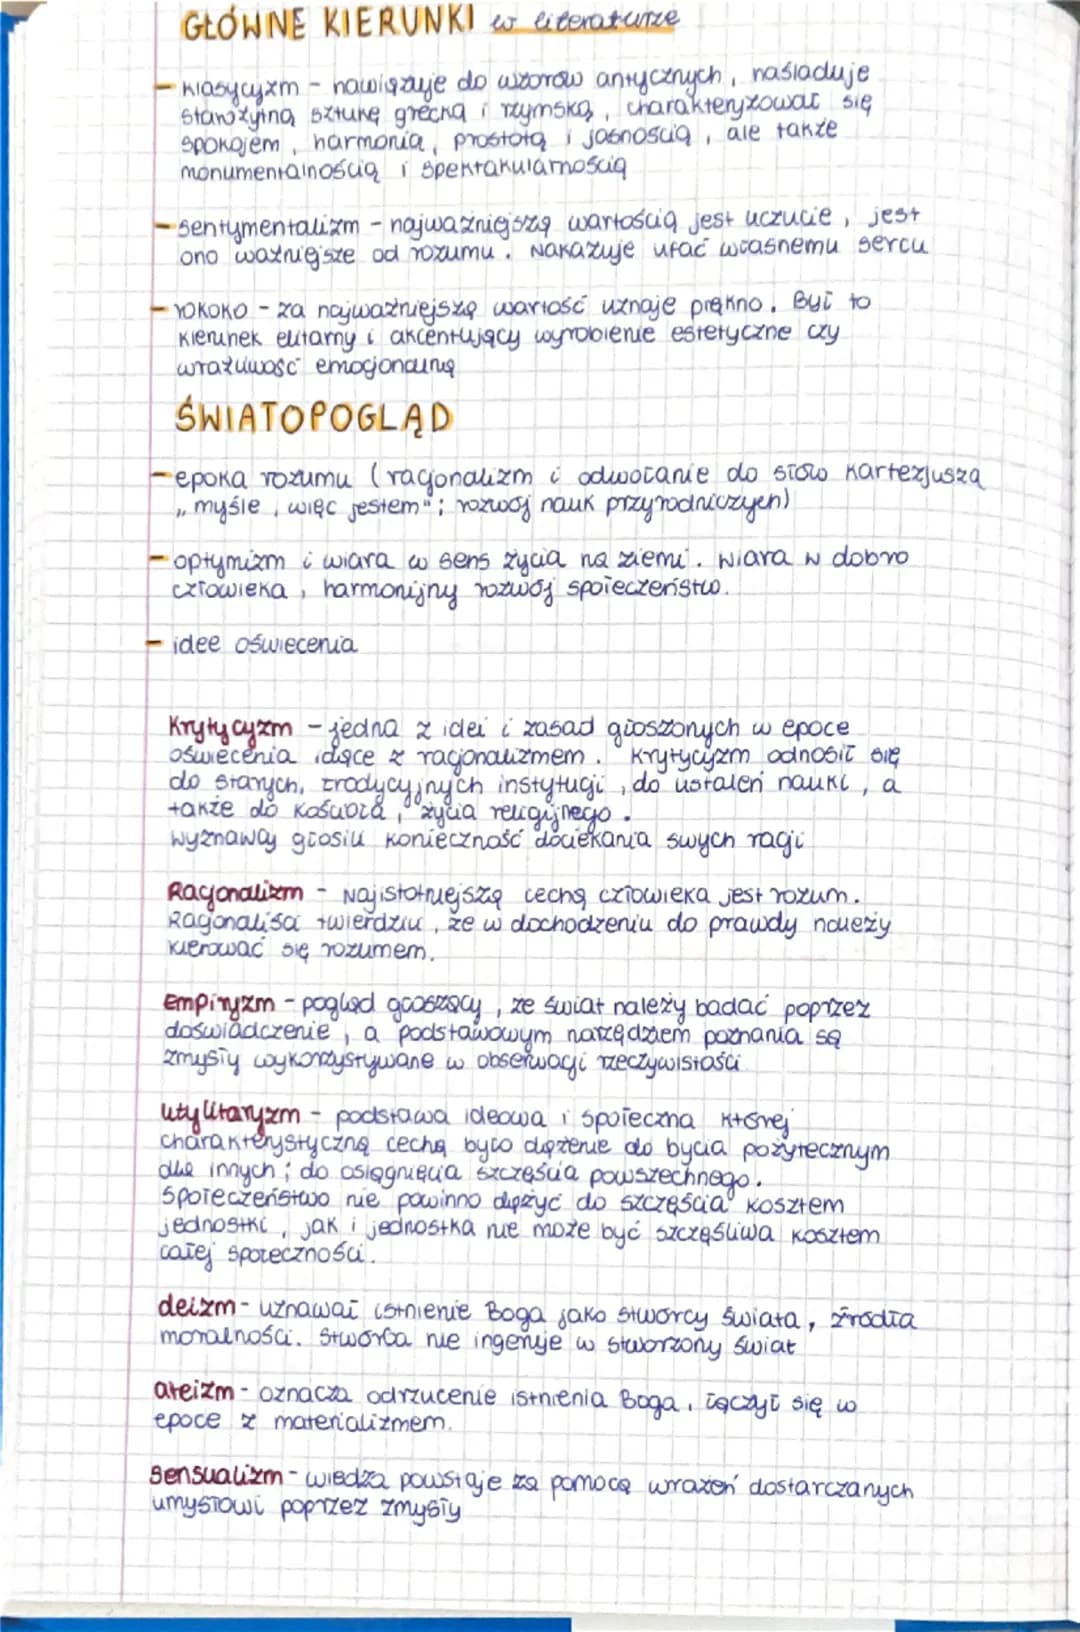 GŁÓWNE KIERUNKI w literaturze
- klasycyzm - nawiązuje do wzorów antycznych, naśladuje
starożytną sztukę grecką i rzymską, charakteryzował się
spokojem, harmonią, prostotą i jasnością, ale także
monumentalnością i spektakularnością
- sentymentalizm - najważniejszą wartością jest uczucie, jest
ono ważniejsze od rozumu. Nakazuje ufać własnemu sercu
- rokoko - za najważniejszą wartość uznaje piękno. Był to
kierunek elitarny i akcentujący wyrobienie estetyczne czy
wrażliwość emocjonalną
ŚWIATOPOGLĄD
- epoka rozumu (racjonalizm i odwołanie do słów Kartezjusza
„myśle, więc jestem"; rozwój nauk przyrodniczych)
- optymizm i wiara w sens życia na ziemi. Wiara w dobro
człowieka, harmonijny rozwój społeczeństw.
- idee oświecenia
Krytycyzm - jedna z idei i zasad głoszonych w epoce
oświecenia idące z racjonalizmem. Krytycyzm odnosił się
do starych, tradycyjnych instytucji, do ustaleń nauki, a
także do Kościoła, życia religijnego.
wyznawcy głosili konieczność dociekania swych racji
Racjonalizm - Najistotniejszą cechą człowieka jest rozum.
Racjonaliści twierdzili, że w dochodzeniu do prawdy należy
kierować się rozumem.
Empiryzm - pogląd głoszący, że świat należy badać poprzez
doświadczenie, a podstawowym narzędziem poznania są
zmysły wykorzystywane w obserwacji rzeczywistości
utylitaryzm - podstawa ideowa i społeczna której
charakterystyczną cechą było dążenie do bycia pożytecznym
dla innych; do osiągnięcia szczęścia powszechnego.
Społeczeństwo nie powinno dążyć do szczęścia kosztem
jednostki, jak i jednostka nie może być szczęśliwa kosztem
całej społeczności.
deizm - uznawał istnienie Boga jako stwórcy świata, źródła
moralności. Stwórca nie ingeruje w stworzony świat
ateizm - oznacza odrzucenie istnienia Boga, łączył się w
epoce z materializmem.
Sensualizm - wiedza powstaje za pomocą wrażeń dostarczanych
umysłowi poprzez zmysły